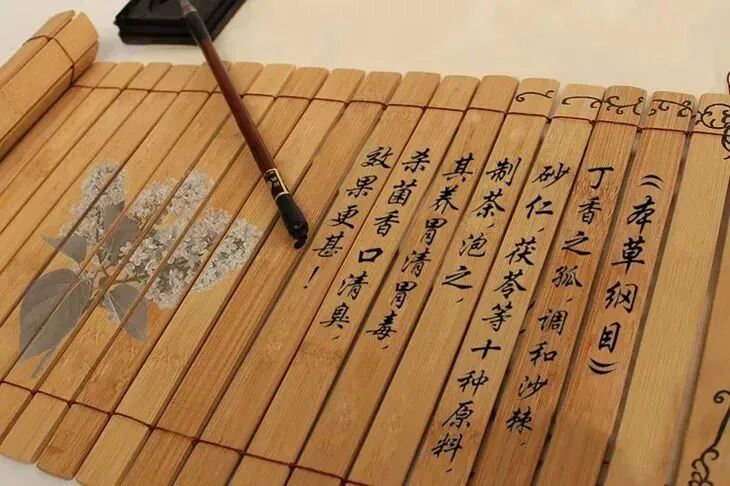 《本草纲目》
丁香之孤,调和沙棘,
砂仁,茯苓等十种原料,
制茶,泡之,
其养胃清胃毒,
杀菌香口清臭,
效果更甚!